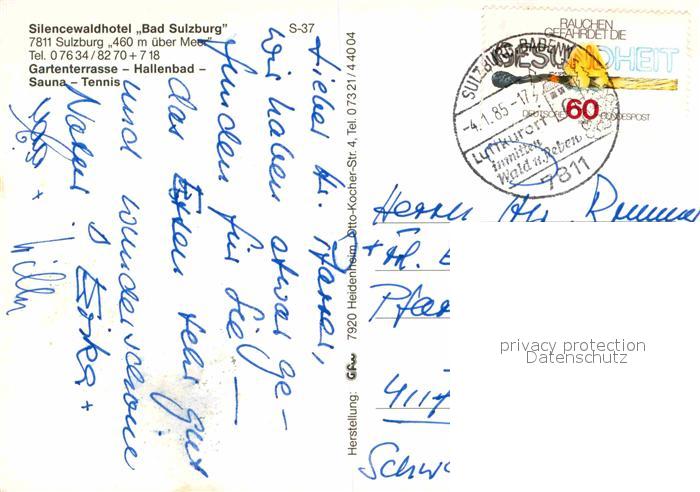 Silencewaldhotel „Bad Sulzburg"
7811 Sulzburg „460 m über Meer"
Tel. 0 76 34 / 82 70 + 7 18
Gartenterrasse – Hallenbad –
Sauna – Tennis
S-37
Lieber Hr. Pfarrer,
wir haben etwas ge-
funden für Sie —
das Essen sehr gut
und wunderschöne
Natur
+ Willy
Erika +
Herstellung: 7920 Heidenheim, Otto-Kocher-Str. 4, Tel. 0 73 21 / 4 40 04
RAUCHEN
GEFÄHRDET DIE
GESUNDHEIT
60
DEUTSCHE BUNDESPOST
SULZBURG, BADEN
-4.1.85-17
Luftkurort
inmitten
Wald u. Reben
7811
Herrn
+
Pfar
4117
Schw
privacy protection
Datenschutz